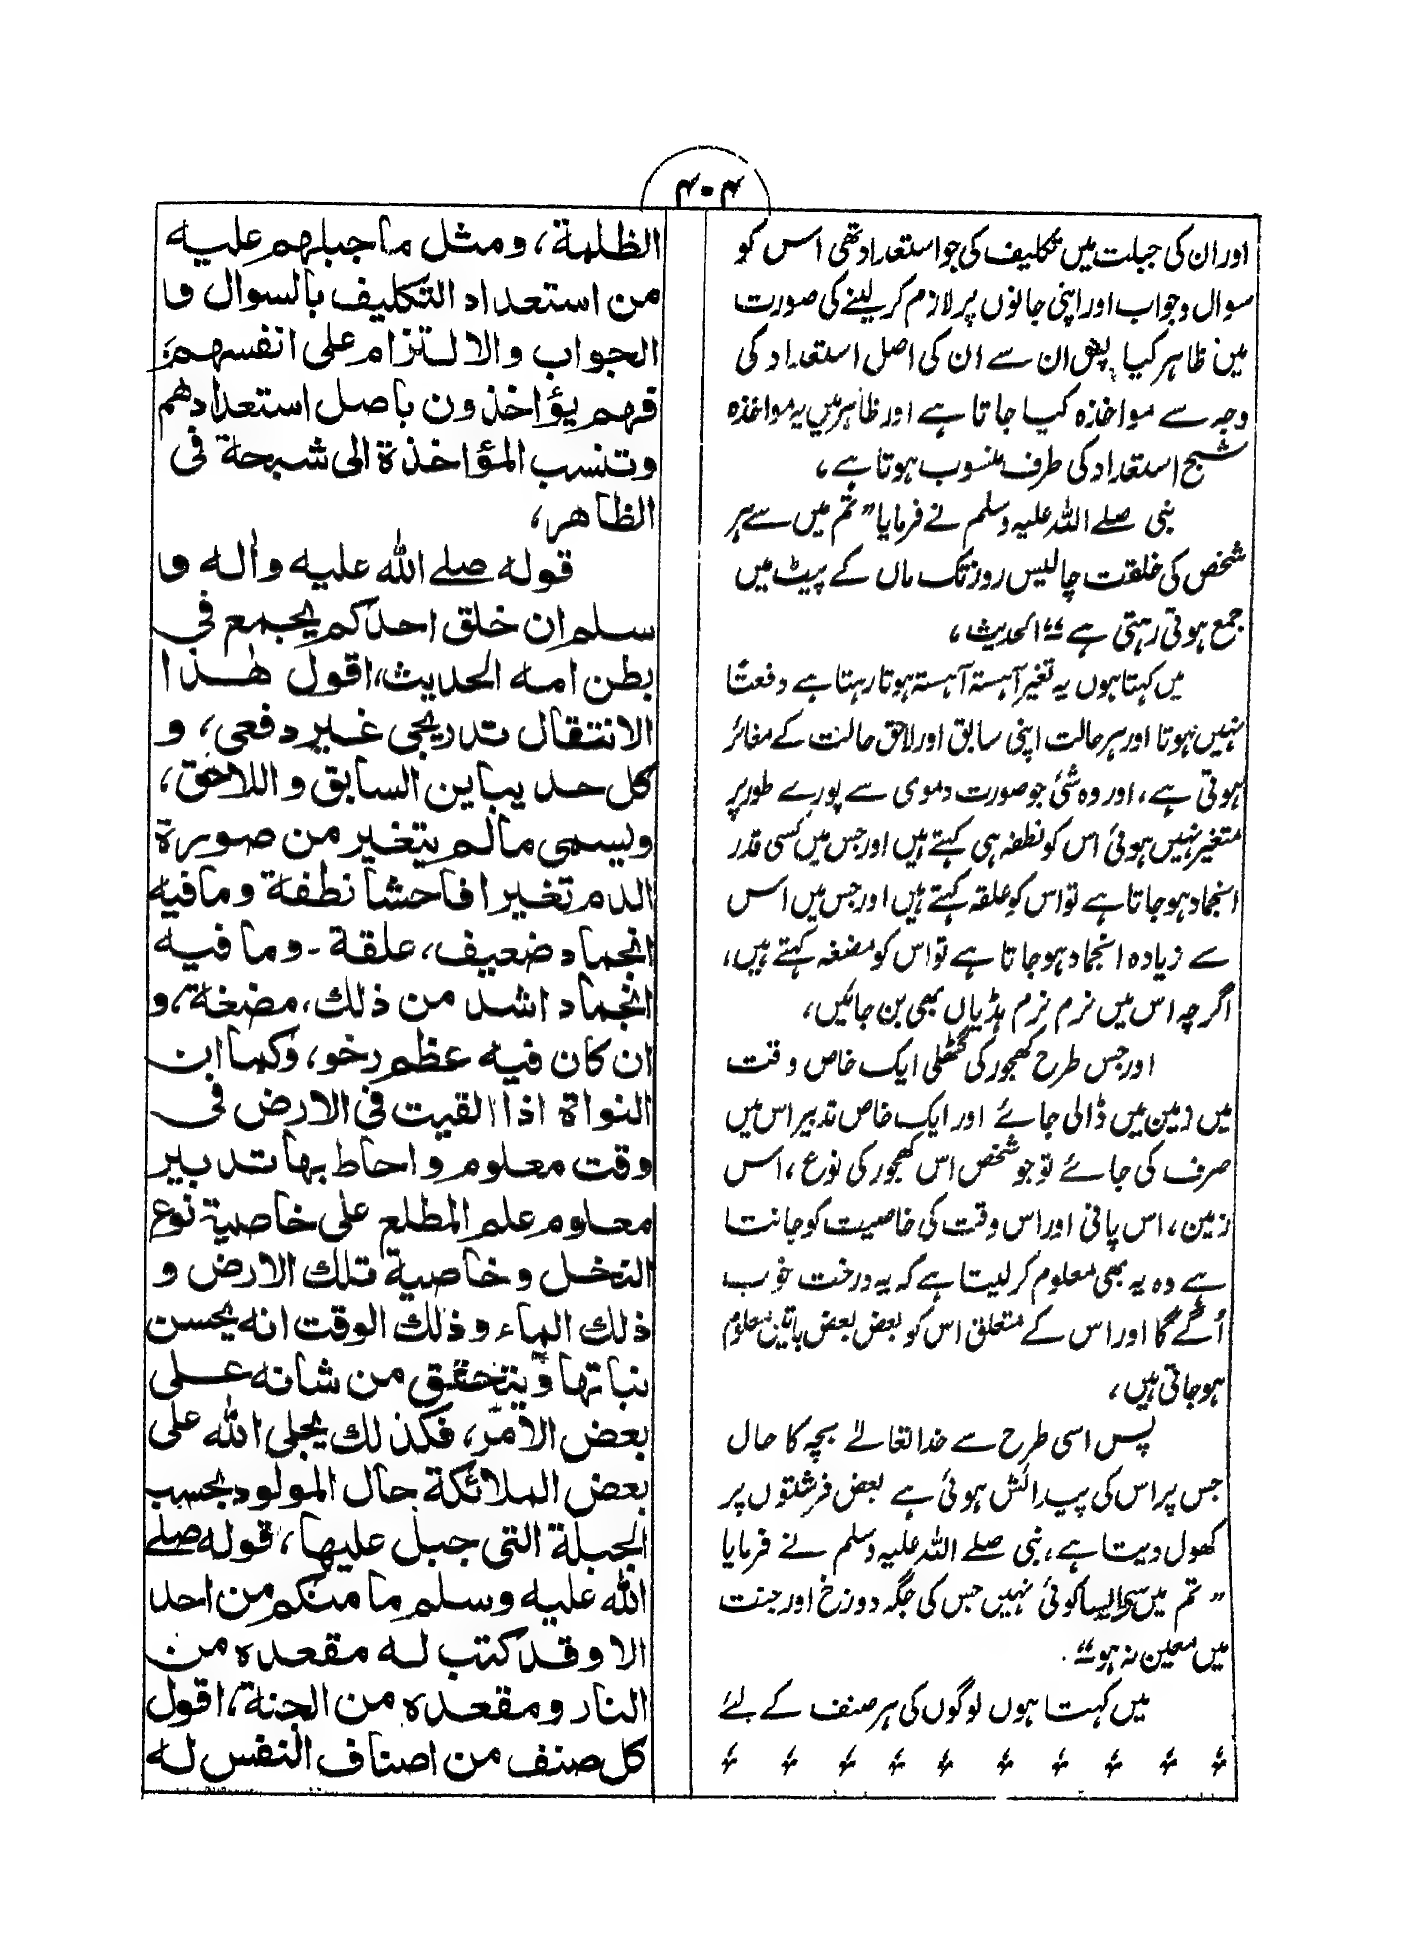 ۴۰۴
اور ان کی جبلت میں تکلیف کی جو استعداد تھی اس کو
سوال و جواب اور اپنی جانوں پر لازم کر لینے کی صورت
میں ظاہر کیا پس ان سے ان کی اصل استعداد کی
وجہ سے مواخذہ کیا جاتا ہے اور ظاہر میں یہ مواخذہ
شبح استعداد کی طرف منسوب ہوتا ہے،
نبی صلے اللہ علیہ وسلم نے فرمایا ”تم میں سے ہر
شخص کی خلقت چالیس روز تک ماں کے پیٹ میں
جمع ہوتی رہتی ہے“ الحدیث،
میں کہتا ہوں یہ تغیر آہستہ آہستہ ہوتا رہتا ہے دفعتاً
نہیں ہوتا اور ہر حالت اپنی سابق اور لاحق حالت کے مغائر
ہوتی ہے، اور وہ شئ جو صورت دموی سے پورے طور پر
متغیر نہیں ہوئی اس کو نطفہ ہی کہتے ہیں اور جس میں کسی قدر
انجماد ہو جاتا ہے تو اس کو علقہ کہتے ہیں اور جس میں اس
سے زیادہ انجماد ہو جاتا ہے تو اس کو مضغہ کہتے ہیں،
اگرچہ اس میں نرم نرم ہڈیاں بھی بن جائیں،
اور جس طرح کھجور کی گٹھلی ایک خاص وقت
میں زمین میں ڈالی جائے اور ایک خاص تدبیر اس میں
صرف کی جائے تو جو شخص اس کھجور کی نوع، اس
زمین، اس پانی اور اس وقت کی خاصیت کو جانتا
ہے وہ یہ بھی معلوم کر لیتا ہے کہ یہ درخت خوب
اُگے گا اور اس کے متعلق اس کو بعض بعض باتیں معلوم
ہو جاتی ہیں،
پس اسی طرح سے خدا تعالےٰ بچہ کا حال
جس پر اس کی پیدائش ہوئی ہے بعض فرشتوں پر
کھول دیتا ہے، نبی صلے اللہ علیہ وسلم نے فرمایا
”تم میں سے ایسا کوئی نہیں جس کی جگہ دوزخ اور جنت
میں معین نہ ہو“
میں کہتا ہوں لوگوں کی ہر صنف کے لئے
الظلمة، ومثل ما جبلهم عليه
من استعداد التكليف بالسوال و
الجواب والالتزام على انفسهم،
فهم يؤاخذون باصل استعدادهم
وتنسب المؤاخذة الى شبحة فى
الظاهر،
قوله صلے الله عليه واٰله و
سلم ان خلق احدكم يجمع فى
بطن امه الحديث، اقول هٰذا
الانتقال تدريجى غير دفعى، و
كل حد يباين السابق و اللاحق،
ويسمى ما لم يتغير من صورة
الدم تغيرا فاحشا نطفة وما فيه
انجماد ضعيف، علقة - وما فيه
انجماد اشد من ذلك، مضغة، و
ان كان فيه عظم رخو، وكما ان
النواة اذا القيت فى الارض فى
وقت معلوم واحاط بها تدبير
معلوم علم المطلع على خاصية نوع
النخل وخاصية تلك الارض و
ذلك الماء وذلك الوقت انه يحسن
نباتها ويتحقق من شانه على
بعض الامر، فكذلك يجلى الله على
بعض الملائكة حال المولود بحسب
الجبلة التى جبل عليها، قوله صلے
الله عليه وسلم ما منكم من احد
الا وقد كتب له مقعده من
النار ومقعده من الجنة، اقول
كل صنف من اصناف النفس له